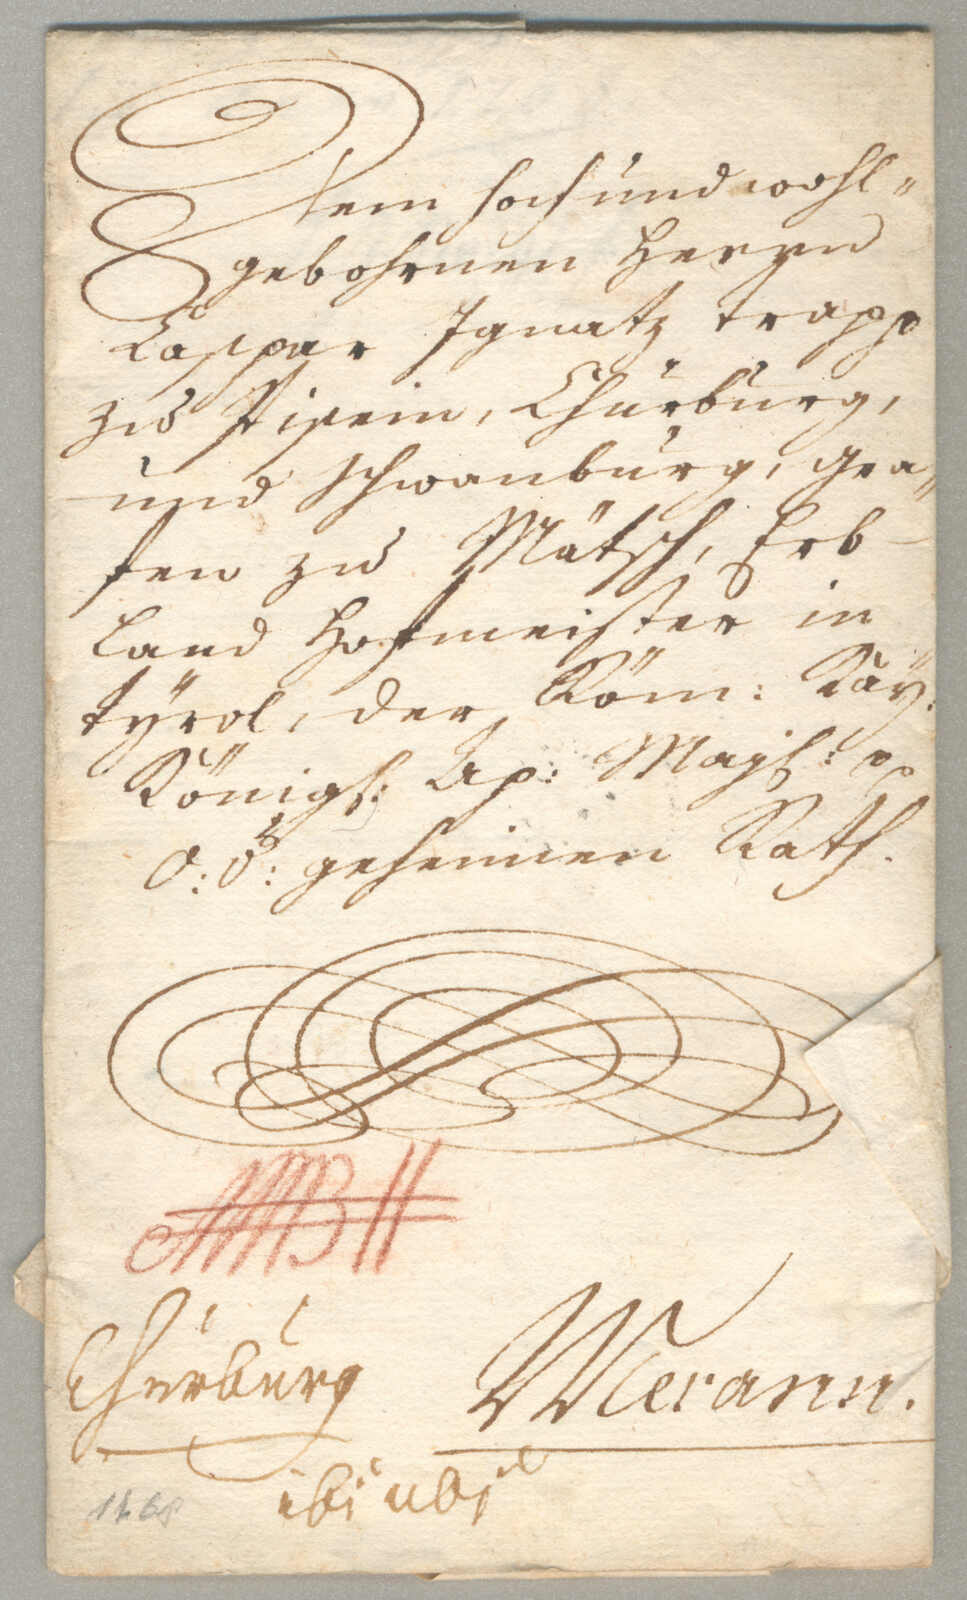 Dem hoch und wohl=
gebohrnen Herrn
Caspar Ignatz trapp
zu Pisein, Chürbürg,
und schwanbürg, Gra=
fen zu Mätsch, Erb
Land Hofmeister in
tÿrol, der Röm: Kaÿ:
Königl: Ap: Mayl:
O:Ö: geheimen Rath.
Chürbürg
Merann.
ibi ubi
1768